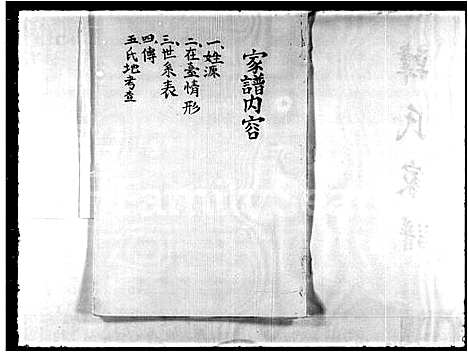 家譜内容
一、姓源
二、在臺情形
三、世系表
四、傳
五、氏地考查
氏家譜